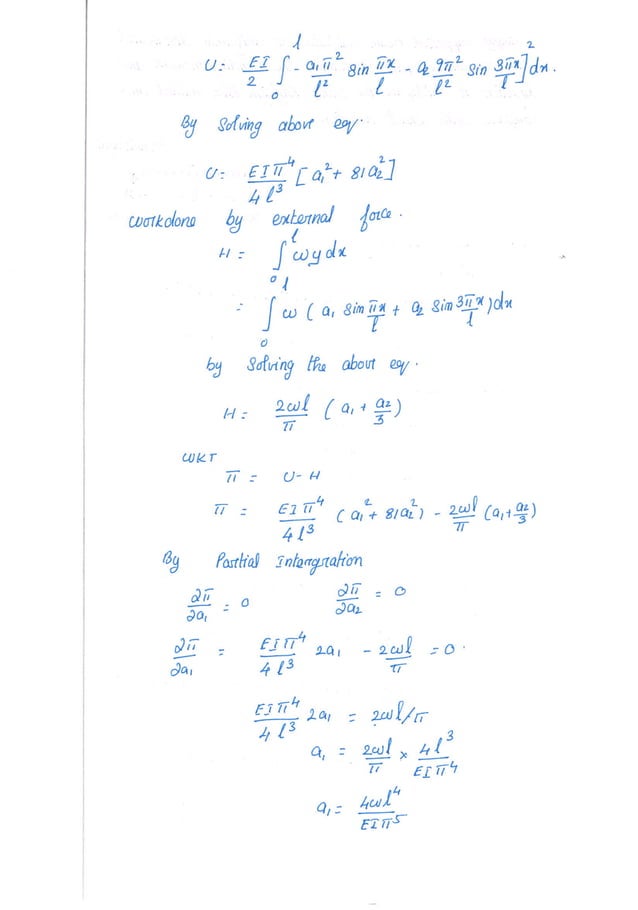 U = EI/2 ∫₀ˡ - a₁π²/l² sin πx/l - a₂ 9π²/l² sin 3πx/l]² dx.
By solving above eq.
U = EIπ⁴/4l³ [a₁² + 81a₂²]
workdone by external force.
H = ∫₀ˡ ωy dx
= ∫₀ˡ ω (a₁ sin πx/l + a₂ sin 3πx/l) dx
by solving the above eq.
H = 2ωl/π (a₁ + a₂/3)
WKT
π = U - H
π = EIπ⁴/4l³ (a₁² + 81a₂²) - 2ωl/π (a₁ + a₂/3)
By Partial Intergration
∂π/∂a₁ = 0 ∂π/∂a₂ = 0
∂π/∂a₁ = EIπ⁴/4l³ 2a₁ - 2ωl/π = 0.
EIπ⁴/4l³ 2a₁ = 2ωl/π
a₁ = 2ωl/π × 4l³/EIπ⁴
a₁ = 4ωl⁴/EIπ⁵